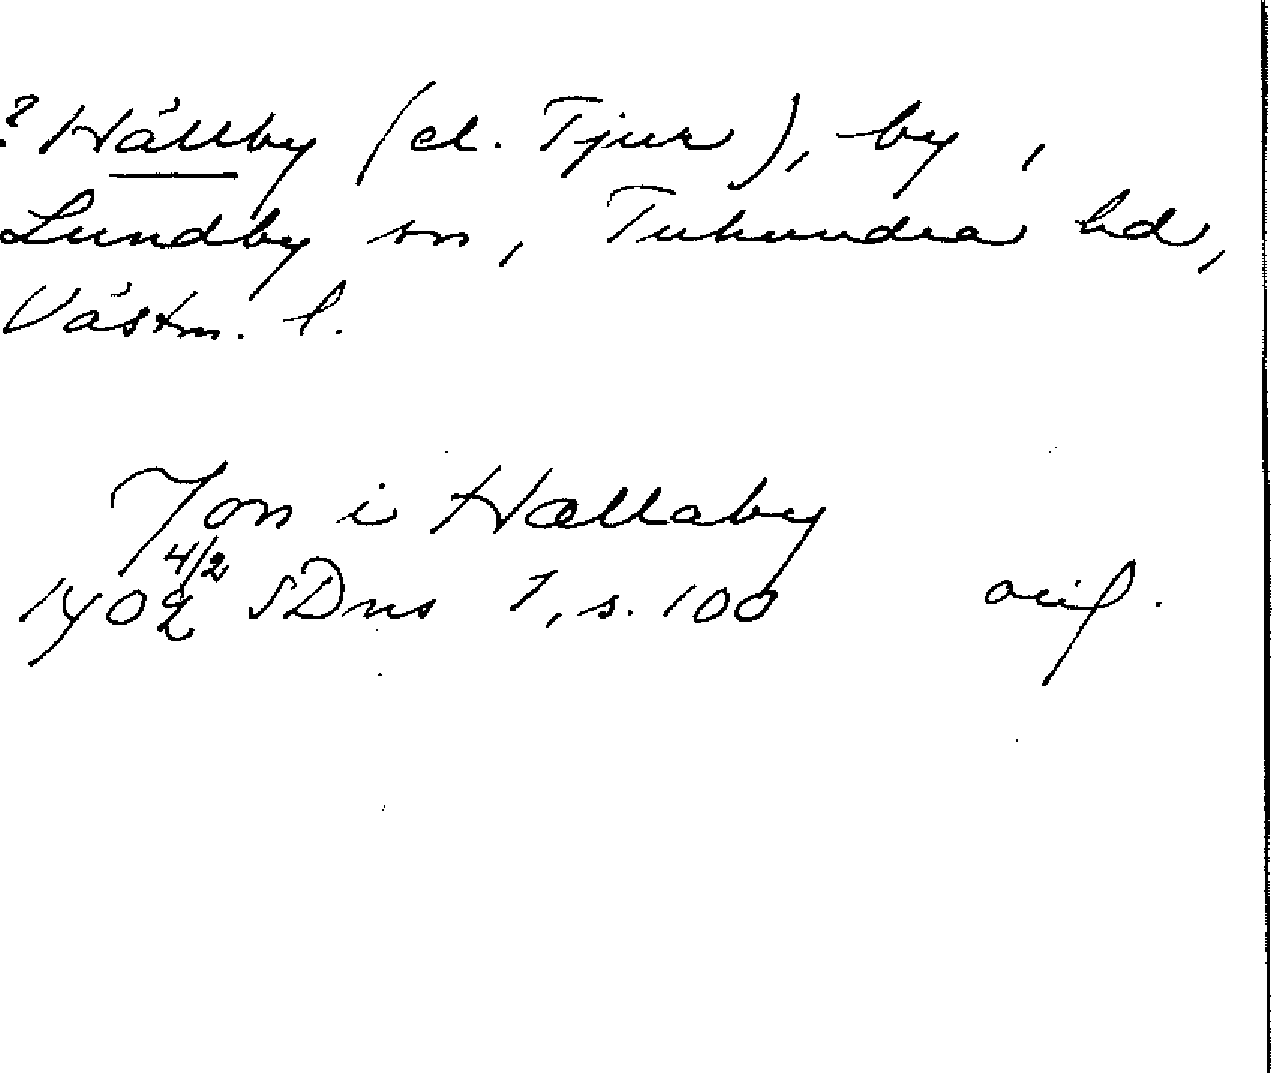 ? Hällby (el. Tjur), by,
Lundby sn, Tuhundra hd,
Västm. l.
Jon i Hællaby
4/2
1402 SDns 1, s. 100 orig.